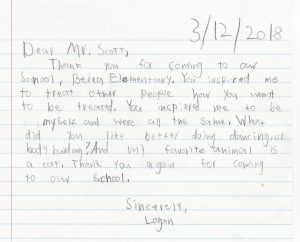 3/12/2018
Dear Mr. Scott,
Thank you for coming to our
School, Elementary. You inspired me
to treat other people how you want
to be treated. You inspired me to be
myself and were all the same. What
did you like better doing dancing, or
body building? And my favorite animal is
a cat. Thank you again for coming
to our School.
Sincerely,
Logan